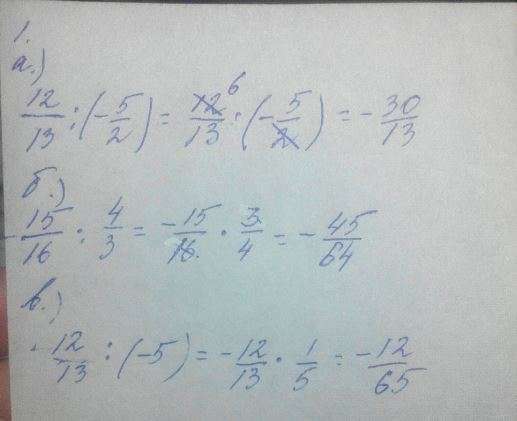 1.
а.)
12/13 : (-5/2) = 12/13 : (-5/2) = -30/13 6
б.)
-15/16 : 4/3 = -15/16 · 3/4 = -45/64
в.)
-12/13 : (-5) = -12/13 · 1/5 = -12/65